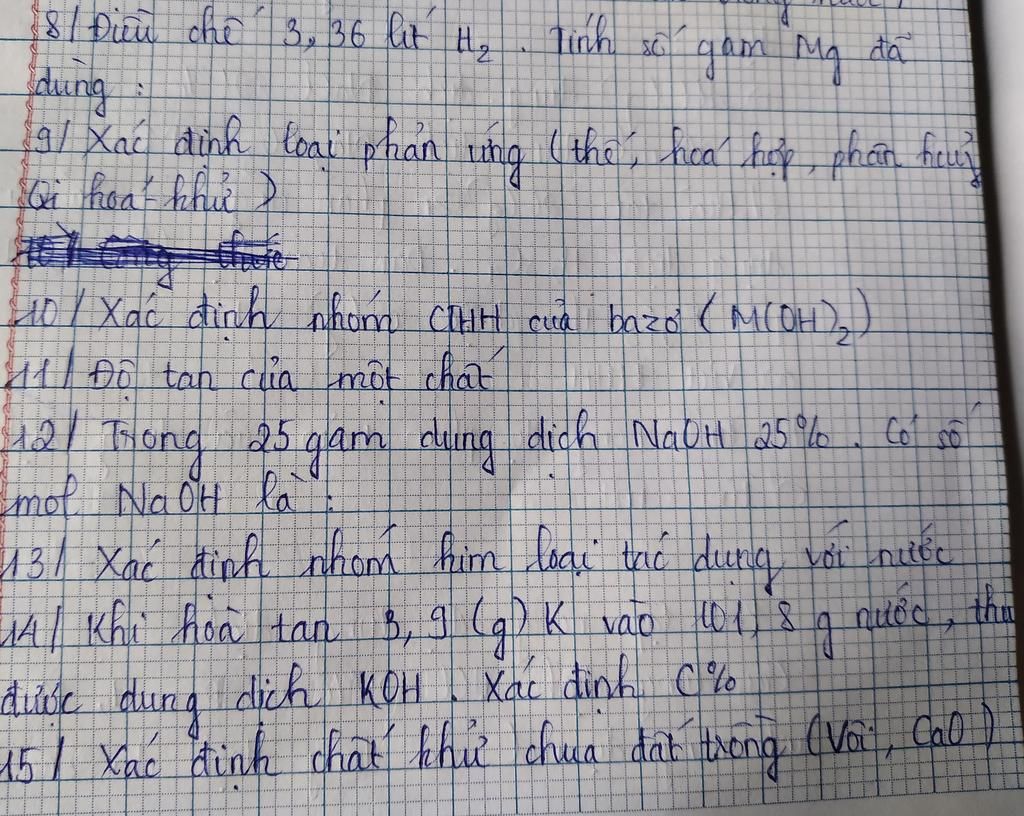 8/ Điều chế 3,36 lít H₂. Tính số gam Mg đã
dùng :
9/ Xác định loại phản ứng (thế, hoá hợp, phân huỷ
Oxi hoá - khử)
10/ Xác định nhóm CTHH của bazơ (M(OH)₂)
11/ Độ tan của một chất
12/ Trong 25 gam dung dịch NaOH 25%. Có số
mol NaOH là :
13/ Xác định nhóm kim loại tác dụng với nước
14/ Khi hoà tan 3,9 (g) K vào 101,8 g nước, thu
được dung dịch KOH. Xác định C%
15/ Xác định chất khử chua đất trồng (Vôi, CaO)